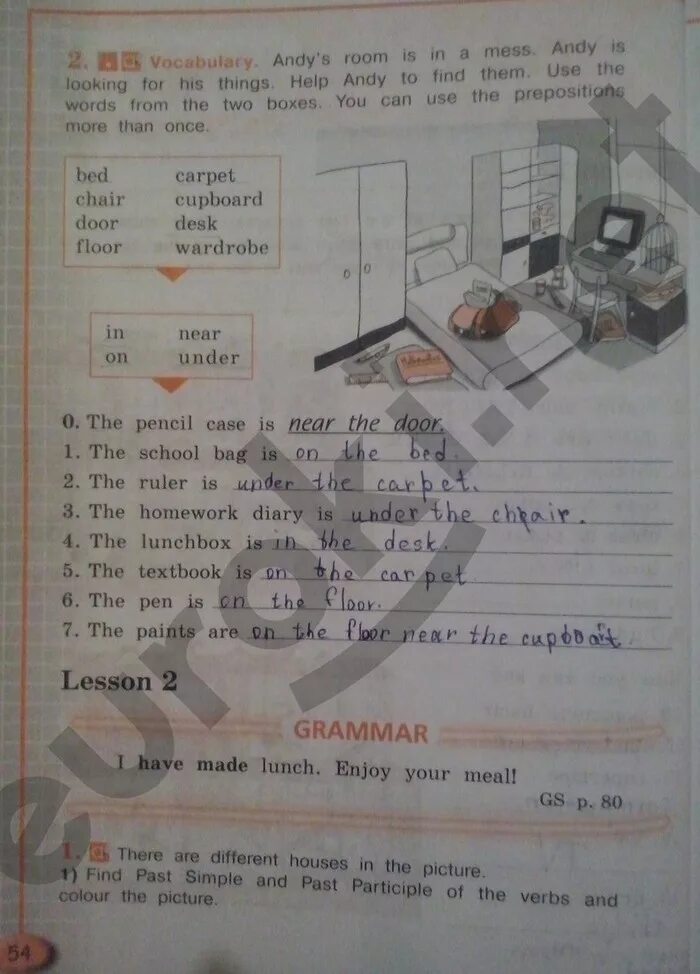 2. Vocabulary. Andy's room is in a mess. Andy is
looking for his things. Help Andy to find them. Use the
words from the two boxes. You can use the prepositions
more than once.
bed carpet
chair cupboard
door desk
floor wardrobe
in near
on under
0. The pencil case is near the door.
1. The school bag is on the bed.
2. The ruler is under the carpet.
3. The homework diary is under the chair.
4. The lunchbox is in the desk.
5. The textbook is on the carpet
6. The pen is on the floor.
7. The paints are on the floor near the cupboart.
Lesson 2
GRAMMAR
I have made lunch. Enjoy your meal!
GS p. 80
1. There are different houses in the picture.
1) Find Past Simple and Past Participle of the verbs and
colour the picture.
54
euroki.net